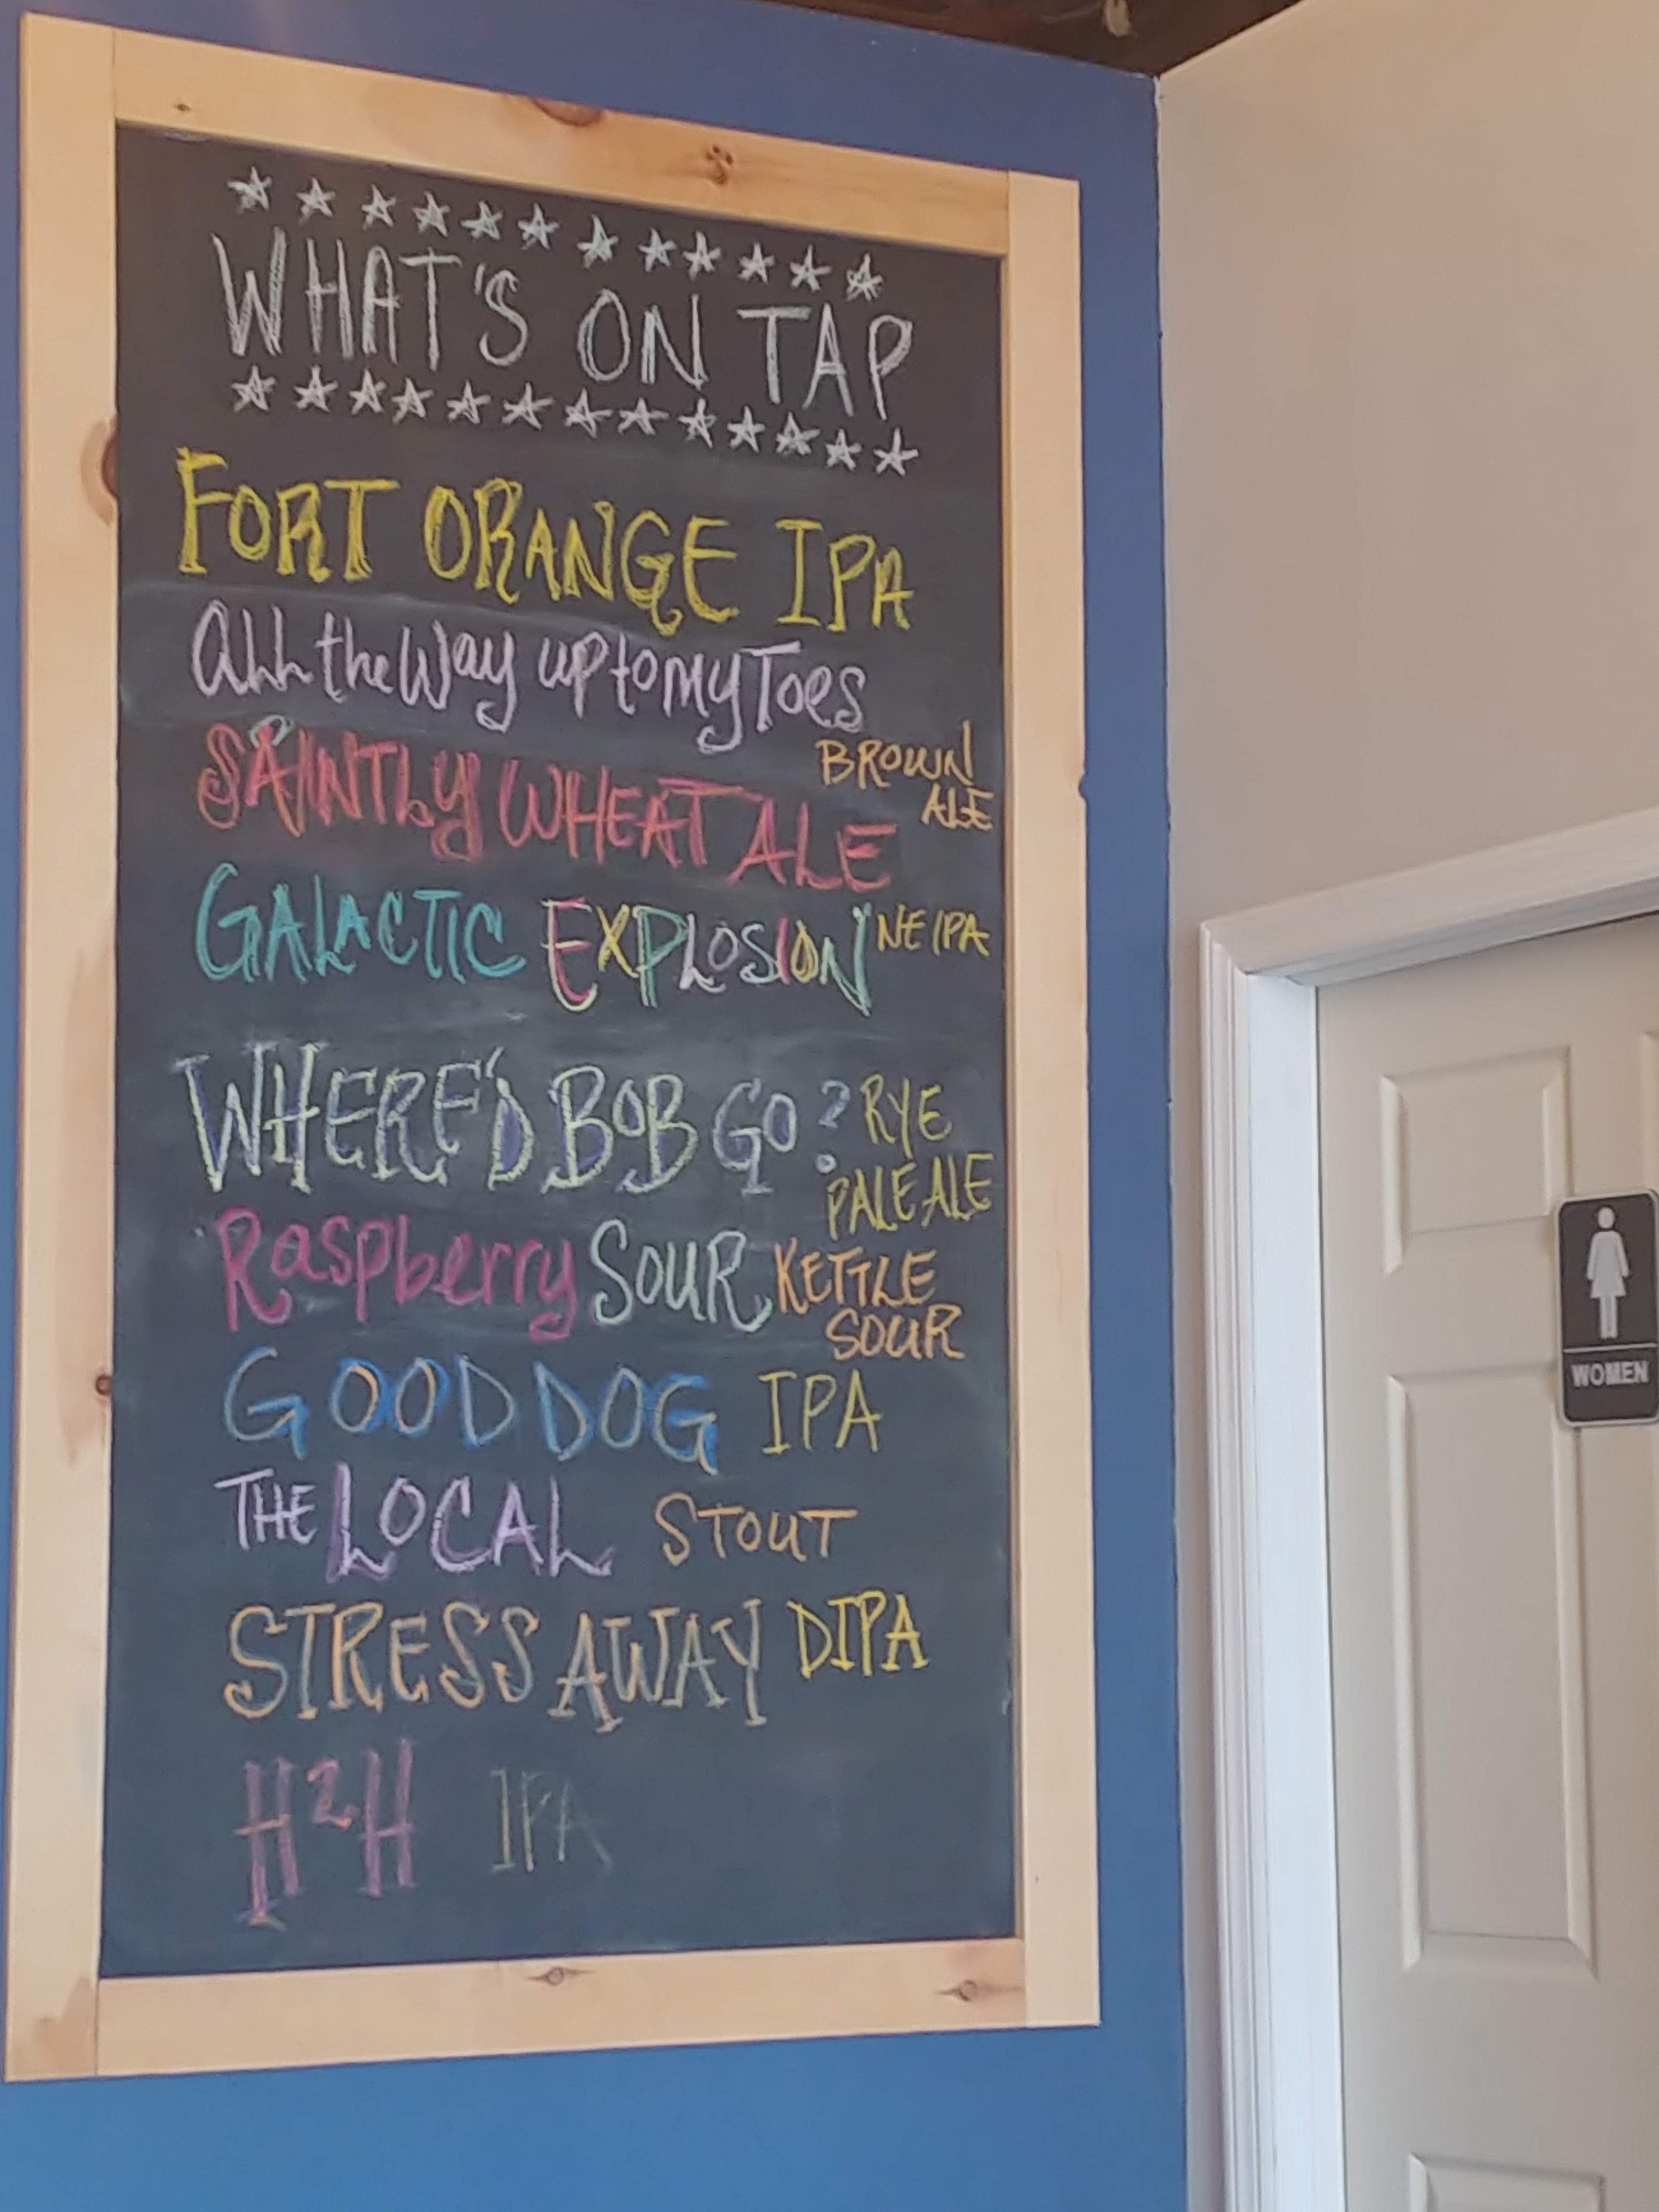 WHAT'S ON TAP
FORT ORANGE IPA
All the Way up to my Toes
BROWN
ALE
SAINTLY WHEAT ALE
GALACTIC EXPLOSION NE IPA
WHERE'D BOB GO? RYE
PALE ALE
Raspberry SOUR KETTLE
SOUR
GOOD DOG IPA
THE LOCAL STOUT
STRESS AWAY DIPA
H2H IPA
WOMEN